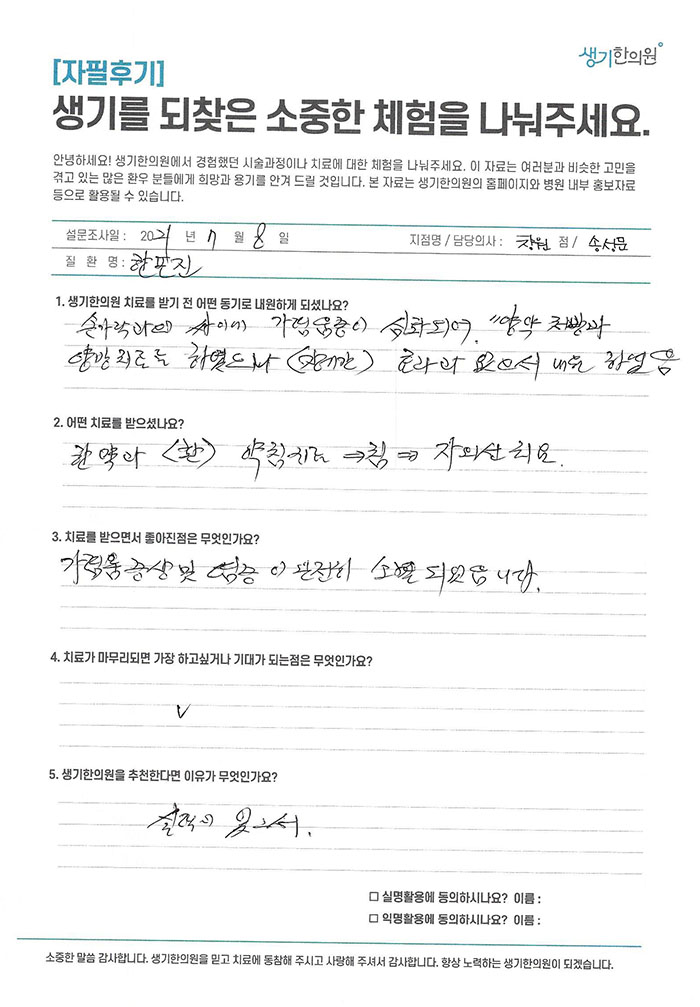 생기한의원
[자필후기]
생기를 되찾은 소중한 체험을 나눠주세요.
안녕하세요! 생기한의원에서 경험했던 시술과정이나 치료에 대한 체험을 나눠주세요. 이 자료는 여러분과 비슷한 고민을
겪고 있는 많은 환우 분들에게 희망과 용기를 안겨 드릴 것입니다. 본 자료는 생기한의원의 홈페이지와 병원 내부 홍보자료
등으로 활용될 수 있습니다.
설문조사일 : 2021 년 7 월 8 일 지점명 / 담당의사 : 창원 점 / 송성문
질 환 명 : 한포진
1. 생기한의원 치료를 받기 전 어떤 동기로 내원하게 되셨나요?
손가락 사이에 가려움증이 심화되어, "양약 처방과
양방치료를 하였으나 효과가 없으서 내원 하였음
2. 어떤 치료를 받으셨나요?
한약과 (환) 약침치료 ⇒ 침 ⇒ 자외선 치료.
3. 치료를 받으면서 좋아진점은 무엇인가요?
가려움 증상 및 염증이 완전히 소멸 되었습니다.
4. 치료가 마무리되면 가장 하고싶거나 기대가 되는점은 무엇인가요?
V
5. 생기한의원을 추천한다면 이유가 무엇인가요?
실력이 있으서.
□ 실명활용에 동의하시나요? 이름 :
□ 익명활용에 동의하시나요? 이름 :
소중한 말씀 감사합니다. 생기한의원을 믿고 치료에 동참해 주시고 사랑해 주셔서 감사합니다. 항상 노력하는 생기한의원이 되겠습니다.